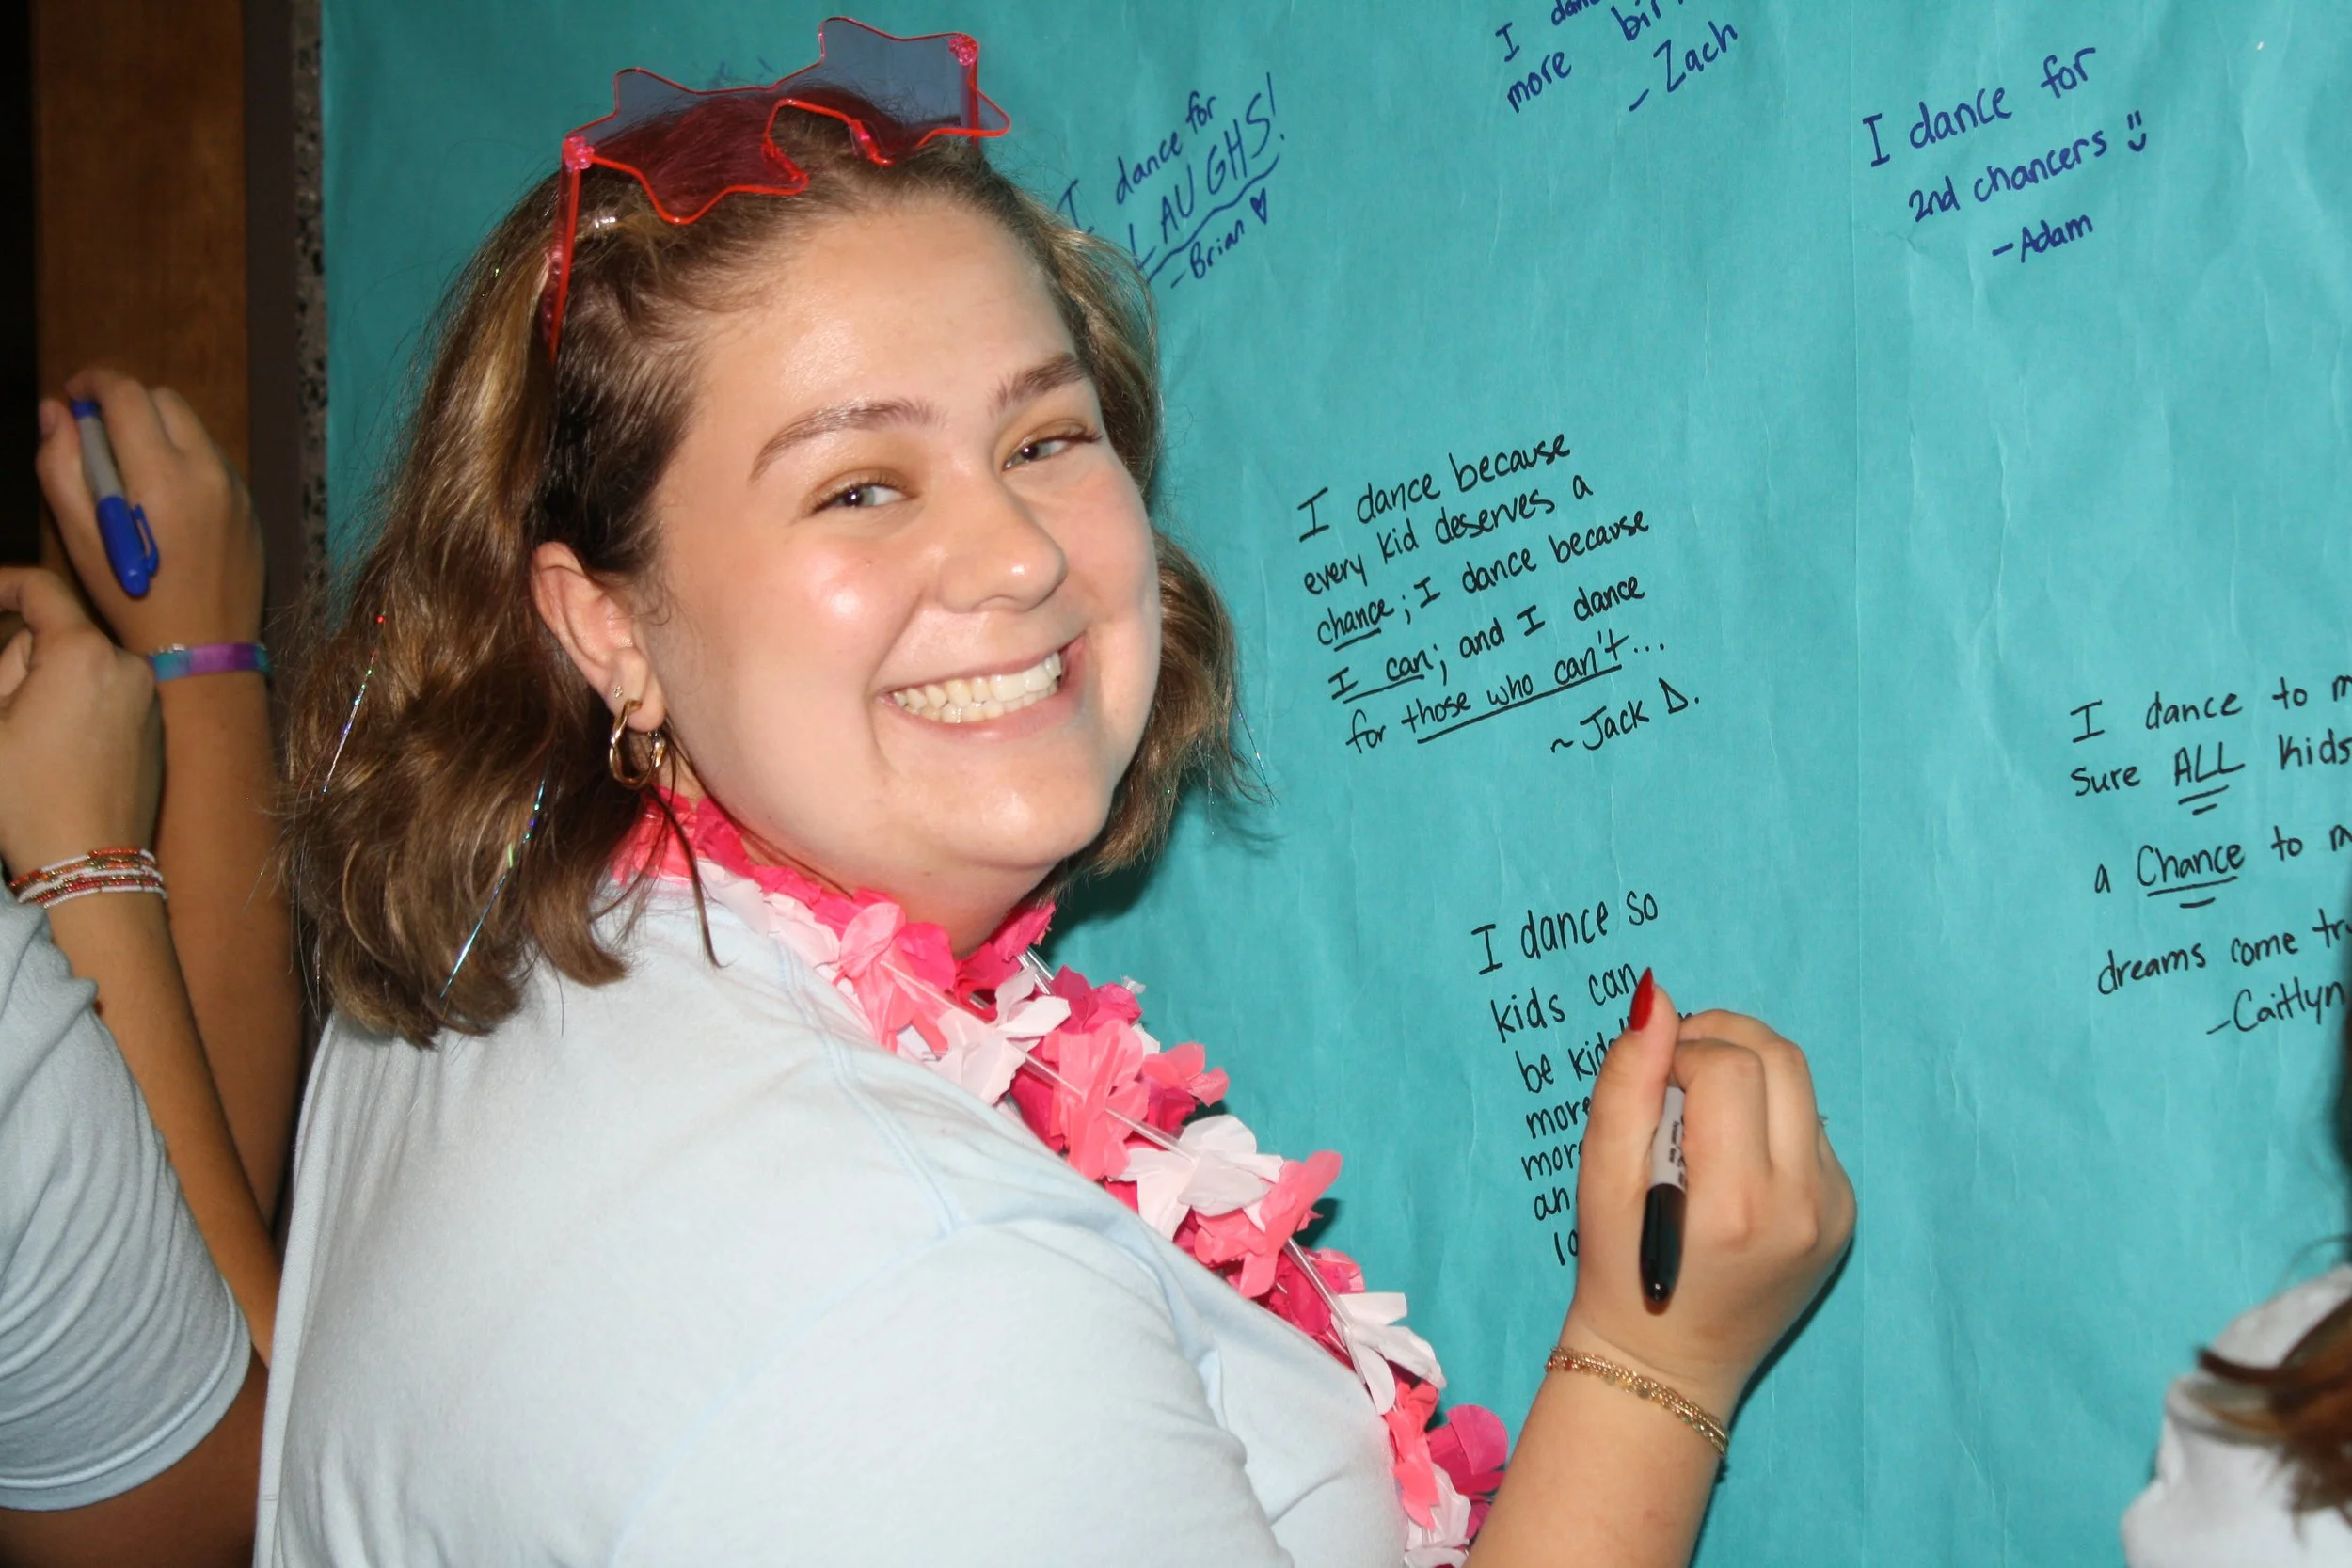 I dance for
LAUGHS!
-Brian ♡
I
more
-Zach
I dance for
2nd chancers
-Adam
I dance because
every kid deserves a
chance; I dance because
I can; and I dance
for those who can't...
~Jack D.
I dance to
sure ALL kids
a Chance to
dreams come
-Caitlyn
I dance so
kids can
be
more